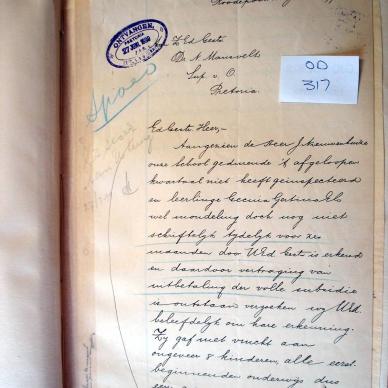 Roodepoort
ONTVANGEN
PRETORIA
27 JUN. 1899
Z Ed Gestr
Dr N Mansvelt
Sup v. O.
Pretoria.
OD
317
Spoed
Ed Gestr. Heer,-
Aangezien de Heer J. Nieuwenhuize
onze School gedurende 't afgeloopen
kwartaal niet heeft geinspecteerd
en leerlinge Cecina
wel mondeling doch nog niet
schriftelijk tijdelijk voor zes
maanden door UEd Gestr is erkend
en daardoor vertraging van
uitbetaling der volle subsidie
is ontstaan verzoeken wij UEd.
beleefdelijk om hare erkenning.
Zij gaf met vrucht aan
ongeveer 8 kinderen, alle eerst-
beginnenden onderwijs dus